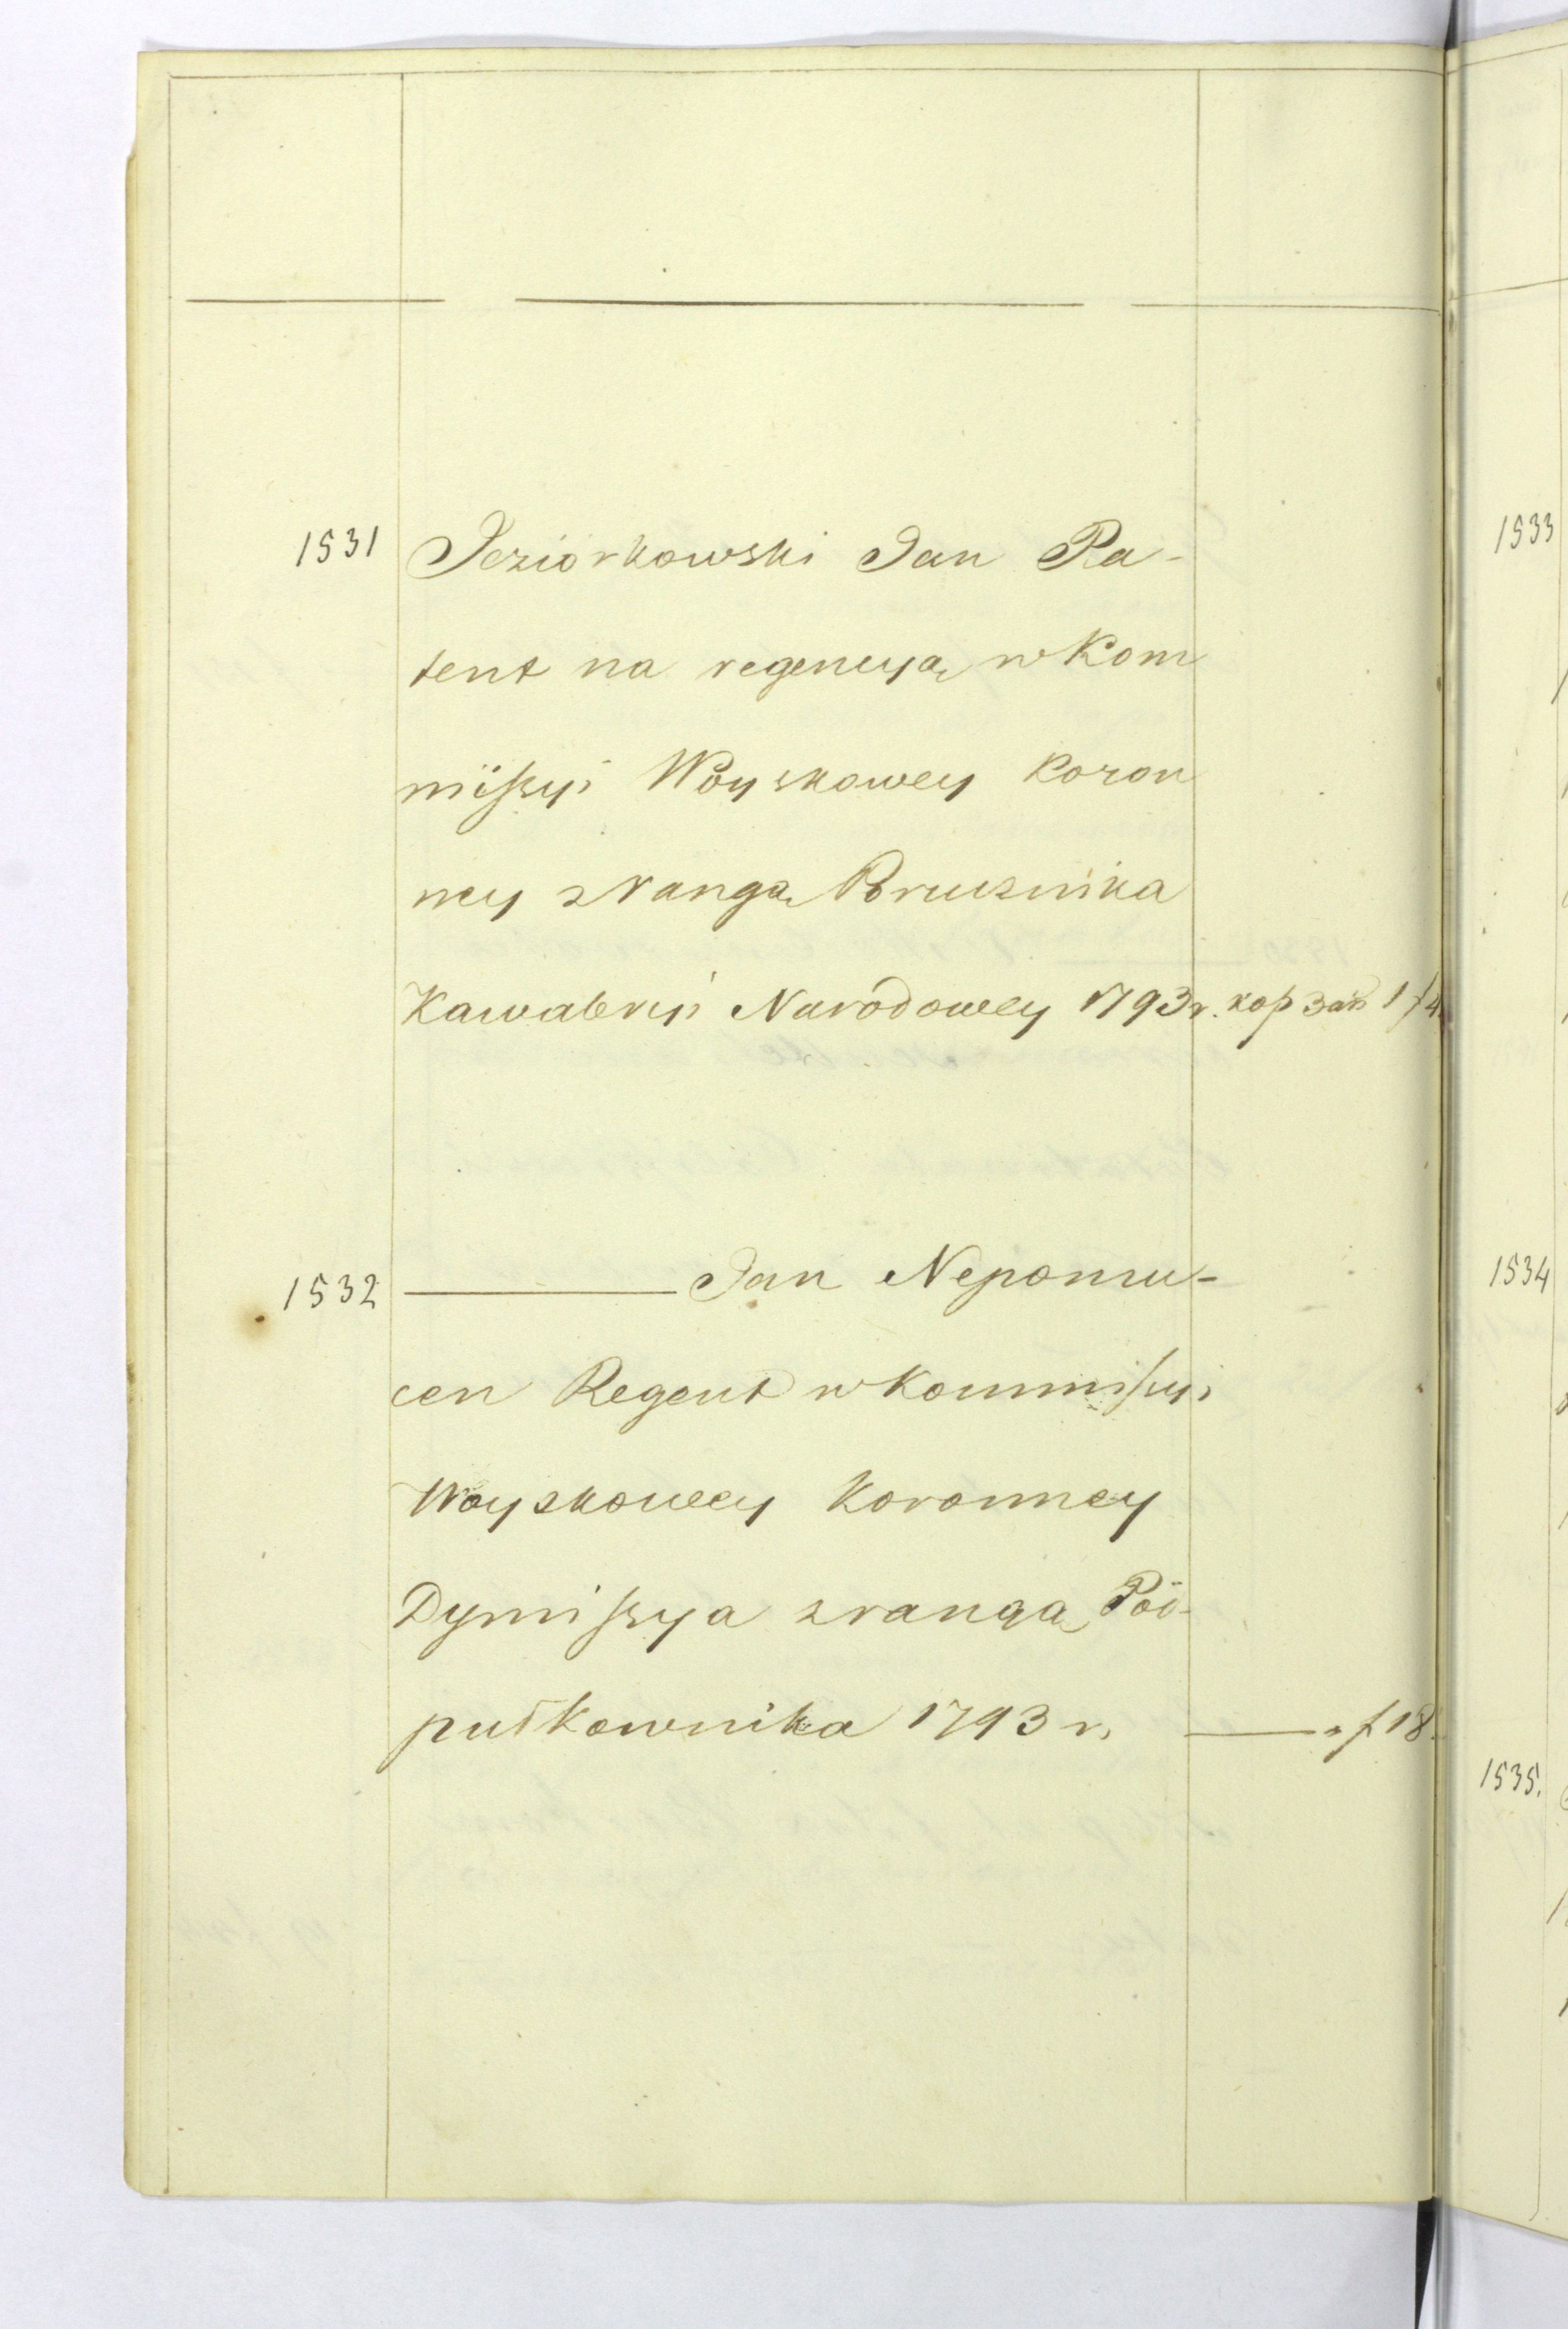 1531 Jeziorkowski Jan Pa-
tent na regencyą w Kom
missyi Woyskowey Koron
ney z Rangą Porucznika
Kawaleryi Narodowey 1793 r. kop 3 ark 1 f 4
1532 ——— Jan Nepomu-
cen Regent w Kommissyi
Woyskowey Koronney
Dymissya z rangą Pod-
pułkownika 1793 r. ——— „ f 18.
1533
1534
1535.